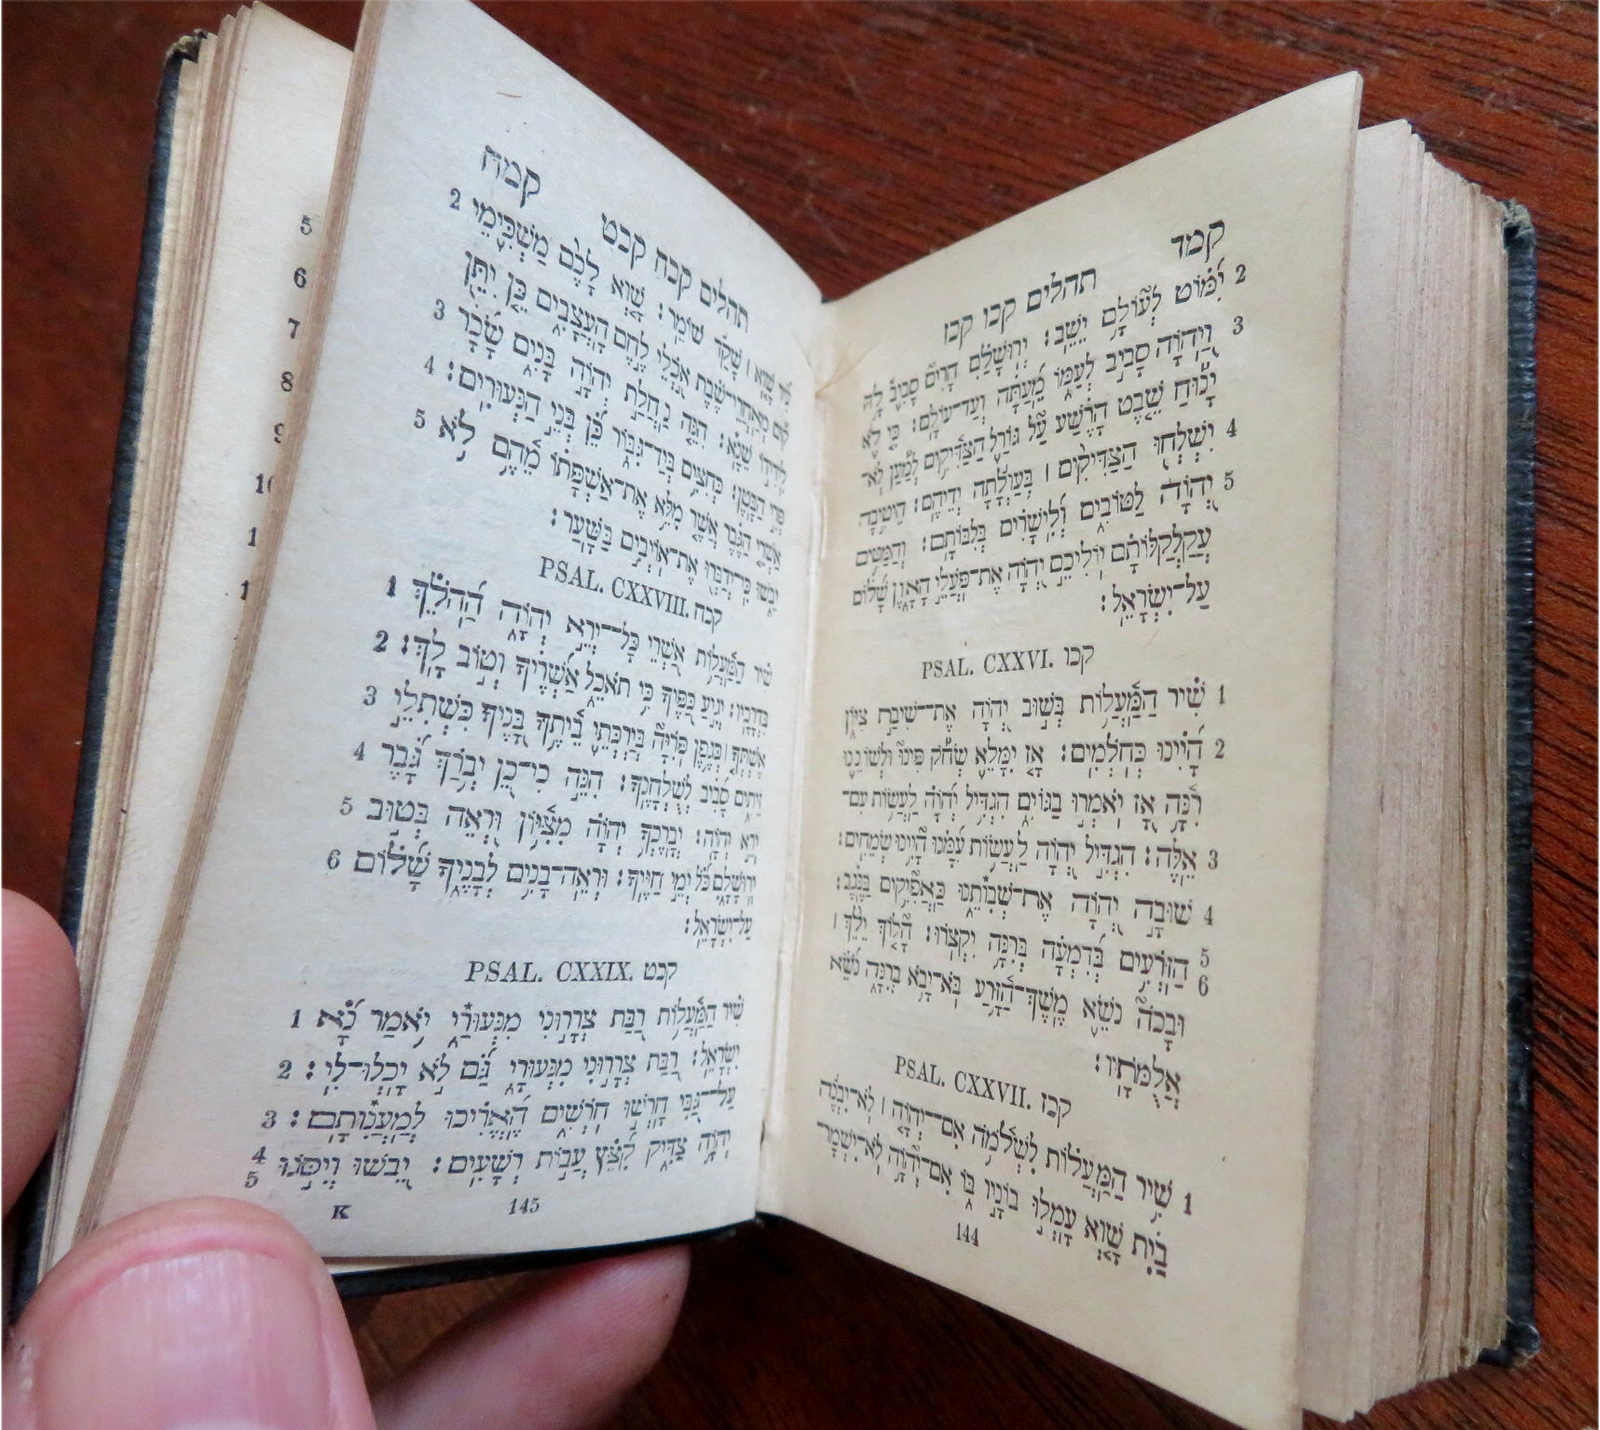 קמד
תהלים קכו קכז
יִמּוֹט לְעוֹלָם יֵשֵׁב: יְרוּשָׁלַ͏ִם הָרִים סָבִיב לָהּ 2
וַיהוָה סָבִיב לְעַמּוֹ מֵעַתָּה וְעַד־עוֹלָם: כִּי לֹא 3
יָנוּחַ שֵׁבֶט הָרֶשַׁע עַל גּוֹרַל הַצַּדִּיקִים לְמַעַן לֹא־
יִשְׁלְחוּ הַצַּדִּיקִים ׀ בְּעַוְלָתָה יְדֵיהֶם: הֵיטִיבָה 4
יְהוָה לַטּוֹבִים וְלִישָׁרִים בְּלִבּוֹתָם: וְהַמַּטִּים 5
עֲקַלְקַלּוֹתָם יוֹלִיכֵם יְהוָה אֶת־פֹּעֲלֵי הָאָוֶן שָׁלוֹם
עַל־יִשְׂרָאֵל:
PSAL. CXXVI. קכו
שִׁיר הַמַּעֲלוֹת בְּשׁוּב יְהוָה אֶת־שִׁיבַת צִיּוֹן 1
הָיִינוּ כְּחֹלְמִים: אָז יִמָּלֵא שְׂחוֹק פִּינוּ וּלְשׁוֹנֵנוּ 2
רִנָּה אָז יֹאמְרוּ בַגּוֹיִם הִגְדִּיל יְהוָה לַעֲשׂוֹת עִם־
אֵלֶּה: הִגְדִּיל יְהוָה לַעֲשׂוֹת עִמָּנוּ הָיִינוּ שְׂמֵחִים: 3
שׁוּבָה יְהוָה אֶת־שְׁבִותֵנוּ כַּאֲפִיקִים בַּנֶּגֶב: 4
הַזֹּרְעִים בְּדִמְעָה בְּרִנָּה יִקְצֹרוּ: הָלוֹךְ יֵלֵךְ ׀ 5 6
וּבָכֹה נֹשֵׂא מֶשֶׁךְ־הַזָּרַע בֹּא־יָבֹא בְרִנָּה נֹשֵׂא
אֲלֻמֹּתָיו:
PSAL. CXXVII. קכז
שִׁיר הַמַּעֲלוֹת לִשְׁלֹמֹה אִם־יְהוָה ׀ לֹא־יִבְנֶה 1
בַיִת שָׁוְא עָמְלוּ בוֹנָיו בּוֹ אִם־יְהוָה לֹא־יִשְׁמָר־
144
קמה
תהלים קכח קכט
עִיר שָׁוְא ׀ שָׁקַד שׁוֹמֵר: שָׁוְא לָכֶם מַשְׁכִּימֵי 2
קוּם מְאַחֲרֵי־שֶׁבֶת אֹכְלֵי לֶחֶם הָעֲצָבִים כֵּן יִתֵּן
לִידִידוֹ שֵׁנָא: הִנֵּה נַחֲלַת יְהוָה בָּנִים שָׂכָר 3
פְּרִי הַבָּטֶן: כְּחִצִּים בְּיַד־גִּבּוֹר כֵּן בְּנֵי הַנְּעוּרִים: 4
אַשְׁרֵי הַגֶּבֶר אֲשֶׁר מִלֵּא אֶת־אַשְׁפָּתוֹ מֵהֶם לֹא 5
יֵבֹשׁוּ כִּי־יְדַבְּרוּ אֶת־אוֹיְבִים בַּשָּׁעַר:
PSAL. CXXVIII. קכח
שִׁיר הַמַּעֲלוֹת אַשְׁרֵי כָּל־יְרֵא יְהוָה הַהֹלֵךְ 1
בִּדְרָכָיו: יְגִיעַ כַּפֶּיךָ כִּי תֹאכֵל אַשְׁרֶיךָ וְטוֹב לָךְ: 2
אֶשְׁתְּךָ ׀ כְּגֶפֶן פֹּרִיָּה בְּיַרְכְּתֵי בֵיתֶךָ בָּנֶיךָ כִּשְׁתִלֵי 3
זֵיתִים סָבִיב לְשֻׁלְחָנֶךָ: הִנֵּה כִי־כֵן יְבֹרַךְ גָּבֶר 4
יְרֵא יְהוָה: יְבָרֶכְךָ יְהוָה מִצִּיּוֹן וּרְאֵה בְּטוּב 5
יְרוּשָׁלָ͏ִם כֹּל יְמֵי חַיֶּיךָ: וּרְאֵה־בָנִים לְבָנֶיךָ שָׁלוֹם 6
עַל־יִשְׂרָאֵל:
PSAL. CXXIX. קכט
שִׁיר הַמַּעֲלוֹת רַבַּת צְרָרוּנִי מִנְּעוּרַי יֹאמַר נָא 1
יִשְׂרָאֵל: רַבַּת צְרָרוּנִי מִנְּעוּרָי גַּם לֹא יָכְלוּ־לִי: 2
עַל־גַּבִּי חָרְשׁוּ חֹרְשִׁים הֶאֱרִיכוּ לְמַעֲנִותָם: 3
יְהוָה צַדִּיק קִצֵּץ עֲבוֹת רְשָׁעִים: יֵבֹשׁוּ וְיִסֹּגוּ 4 5
145
K
5
6
7
8
9